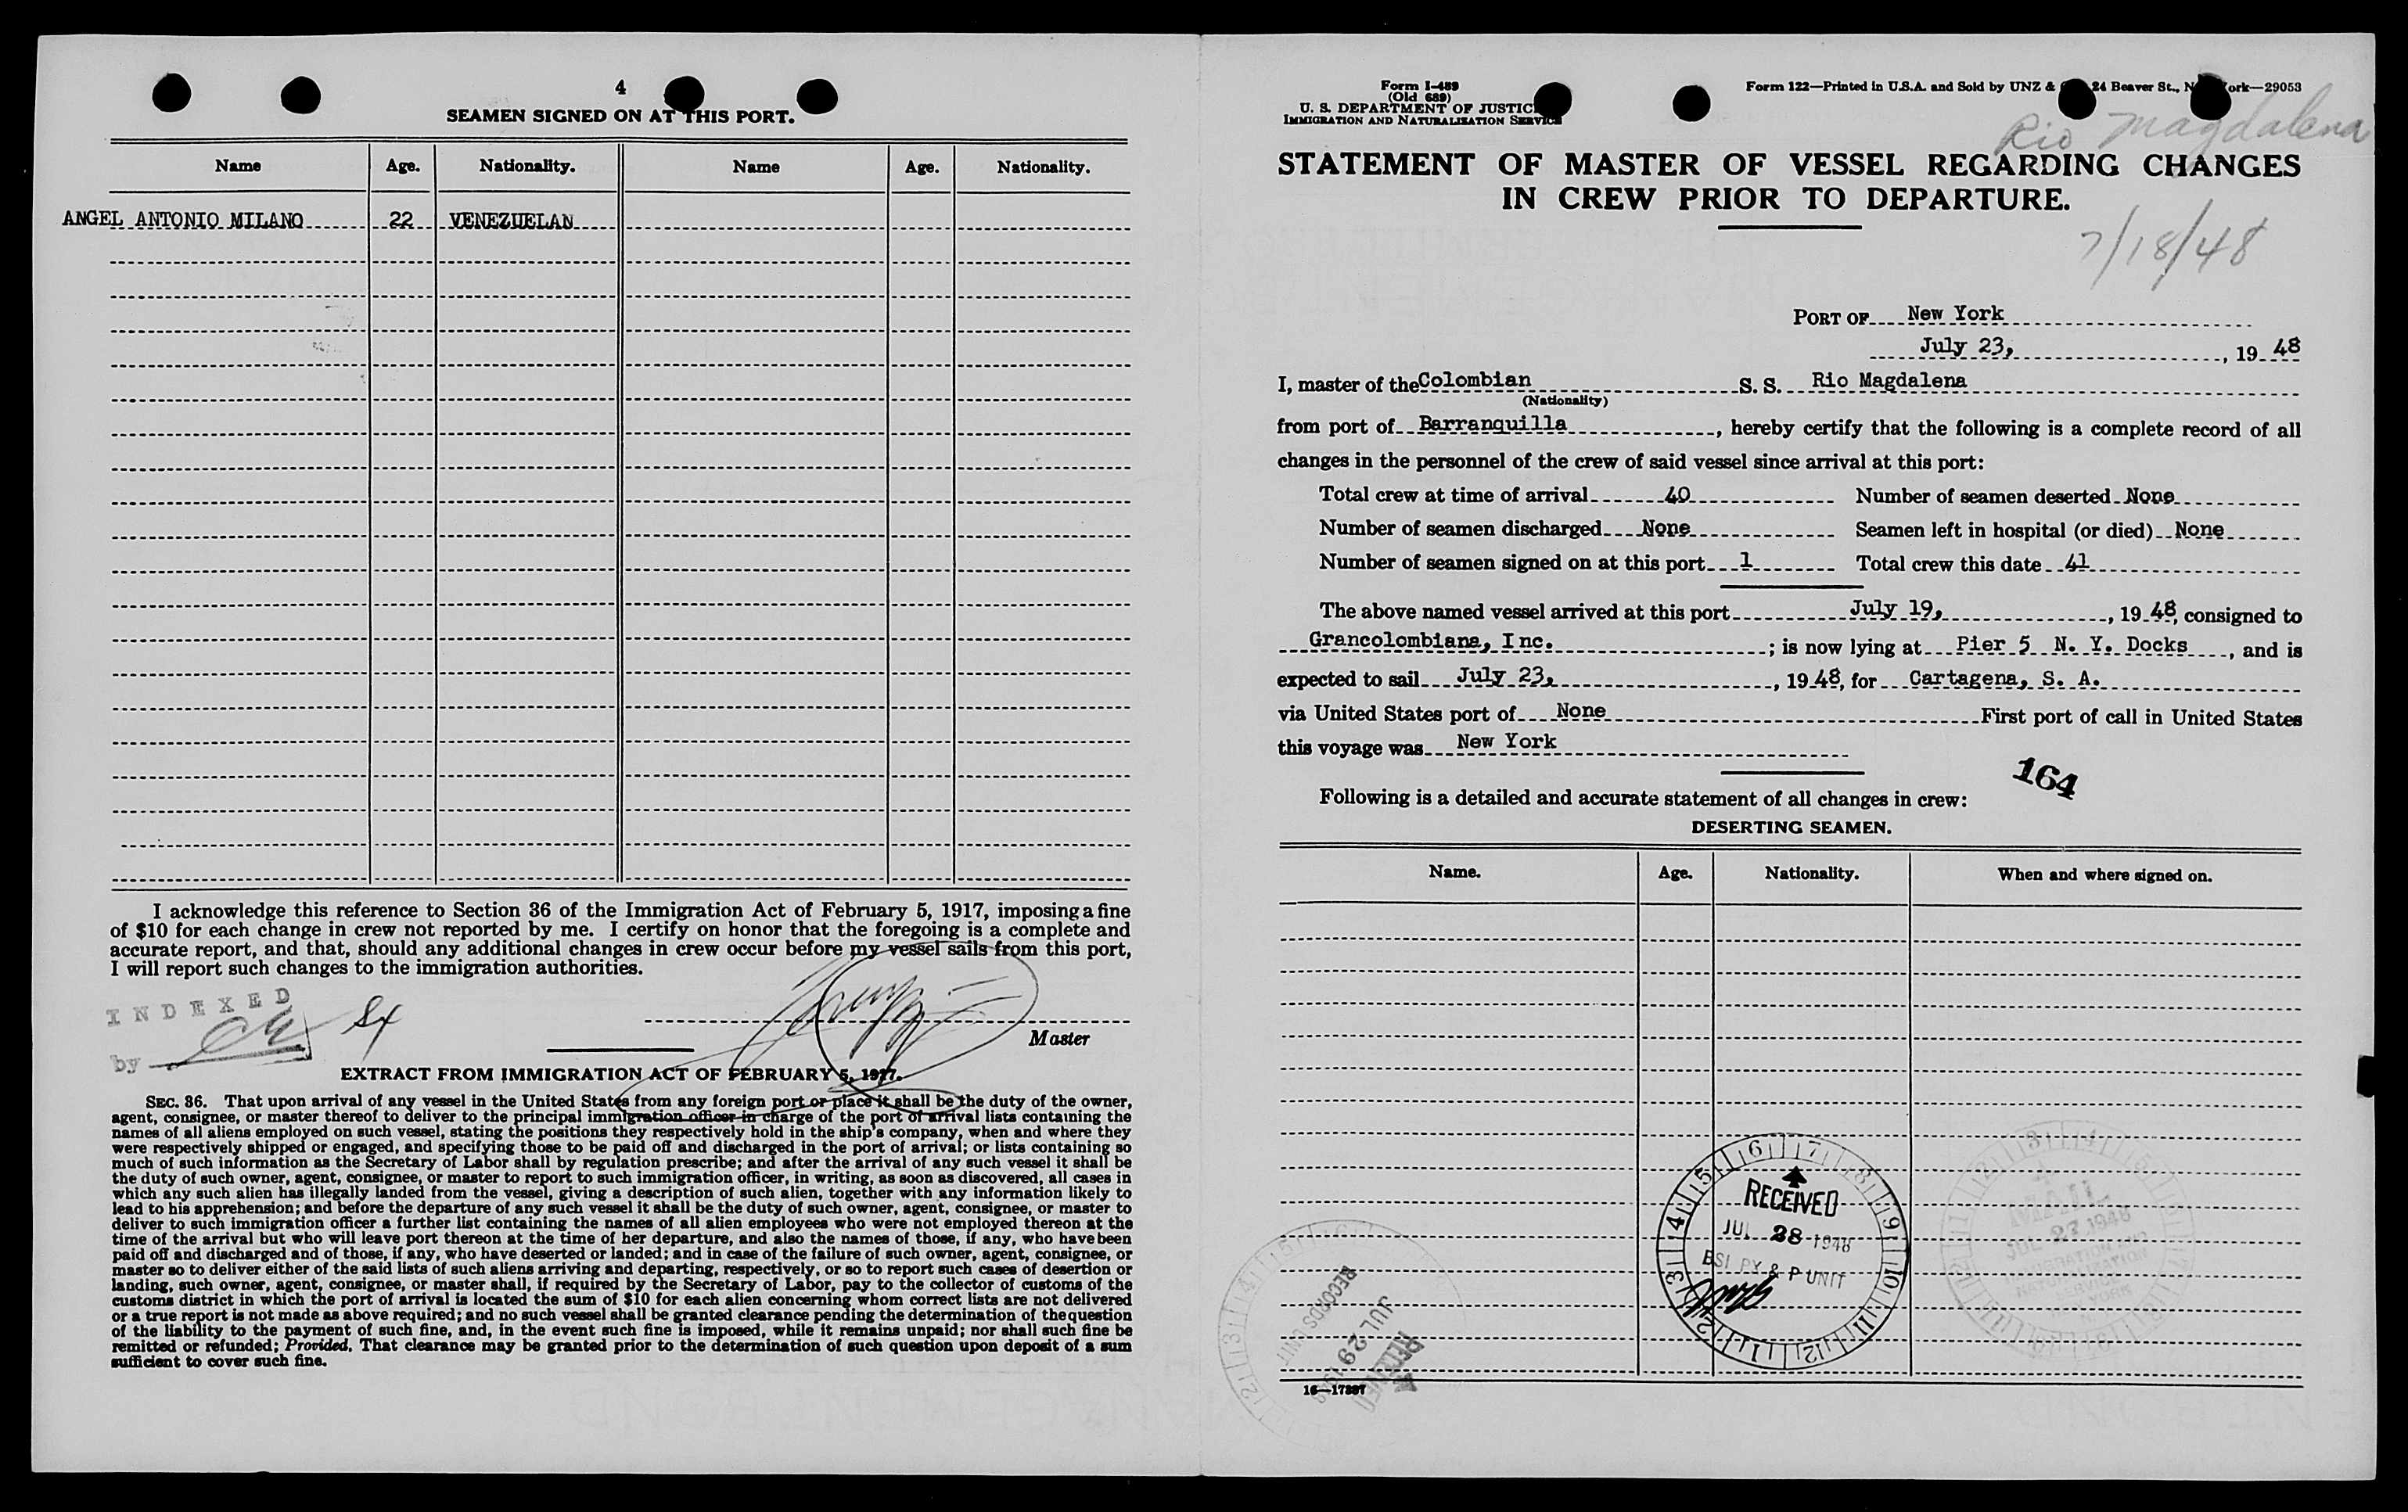 4
SEAMEN SIGNED ON AT THIS PORT.
Name Age. Nationality. Name Age. Nationality.
ANGEL ANTONIO MILANO 22 VENEZUELAN
I acknowledge this reference to Section 36 of the Immigration Act of February 5, 1917, imposing a fine
of $10 for each change in crew not reported by me. I certify on honor that the foregoing is a complete and
accurate report, and that, should any additional changes in crew occur before my vessel sails from this port,
I will report such changes to the immigration authorities.
INDEXED
by
Master
EXTRACT FROM IMMIGRATION ACT OF FEBRUARY 5, 1917.
SEC. 36. That upon arrival of any vessel in the United States from any foreign port or place it shall be the duty of the owner,
agent, consignee, or master thereof to deliver to the principal immigration officer in charge of the port of arrival lists containing the
names of all aliens employed on such vessel, stating the positions they respectively hold in the ship's company, when and where they
were respectively shipped or engaged, and specifying those to be paid off and discharged in the port of arrival; or lists containing so
much of such information as the Secretary of Labor shall by regulation prescribe; and after the arrival of any such vessel it shall be
the duty of such owner, agent, consignee, or master to report to such immigration officer, in writing, as soon as discovered, all cases in
which any such alien has illegally landed from the vessel, giving a description of such alien, together with any information likely to
lead to his apprehension; and before the departure of any such vessel it shall be the duty of such owner, agent, consignee, or master to
deliver to such immigration officer a further list containing the names of all alien employees who were not employed thereon at the
time of the arrival but who will leave port thereon at the time of her departure, and also the names of those, if any, who have been
paid off and discharged and of those, if any, who have deserted or landed; and in case of the failure of such owner, agent, consignee, or
master so to deliver either of the said lists of such aliens arriving and departing, respectively, or so to report such cases of desertion or
landing, such owner, agent, consignee, or master shall, if required by the Secretary of Labor, pay to the collector of customs of the
customs district in which the port of arrival is located the sum of $10 for each alien concerning whom correct lists are not delivered
or a true report is not made as above required; and no such vessel shall be granted clearance pending the determination of the question
of the liability to the payment of such fine, and, in the event such fine is imposed, while it remains unpaid; nor shall such fine be
remitted or refunded; Provided, That clearance may be granted prior to the determination of such question upon deposit of a sum
sufficient to cover such fine.
Form I-489
(Old 689)
U. S. DEPARTMENT OF JUSTICE
IMMIGRATION AND NATURALIZATION SERVICE
Form 122—Printed in U.S.A. and Sold by UNZ & 24 Beaver St., N ork—29053
Rio Magdalena
STATEMENT OF MASTER OF VESSEL REGARDING CHANGES
IN CREW PRIOR TO DEPARTURE.
7/18/48
PORT OF New York
July 23, , 19 48
I, master of the Colombian S. S. Rio Magdalena
(Nationality)
from port of Barranquilla , hereby certify that the following is a complete record of all
changes in the personnel of the crew of said vessel since arrival at this port:
Total crew at time of arrival 40 Number of seamen deserted None
Number of seamen discharged None Seamen left in hospital (or died) None
Number of seamen signed on at this port 1 Total crew this date 41
The above named vessel arrived at this port July 19, , 19 48, consigned to
Grancolombiana, Inc. ; is now lying at Pier 5 N. Y. Docks , and is
expected to sail July 23, , 19 48, for Cartagena, S. A.
via United States port of None First port of call in United States
this voyage was New York
164
Following is a detailed and accurate statement of all changes in crew:
DESERTING SEAMEN.
Name. Age. Nationality. When and where signed on.
RECEIVED
JUL 28 1948
BSI PX & P UNIT
MAIL
JUL 27 1948
IMMIGRATION AND
NATURALIZATION
SERVICE
RECEIVED
JUL 29 1948
RECORDS UNIT
16—17397